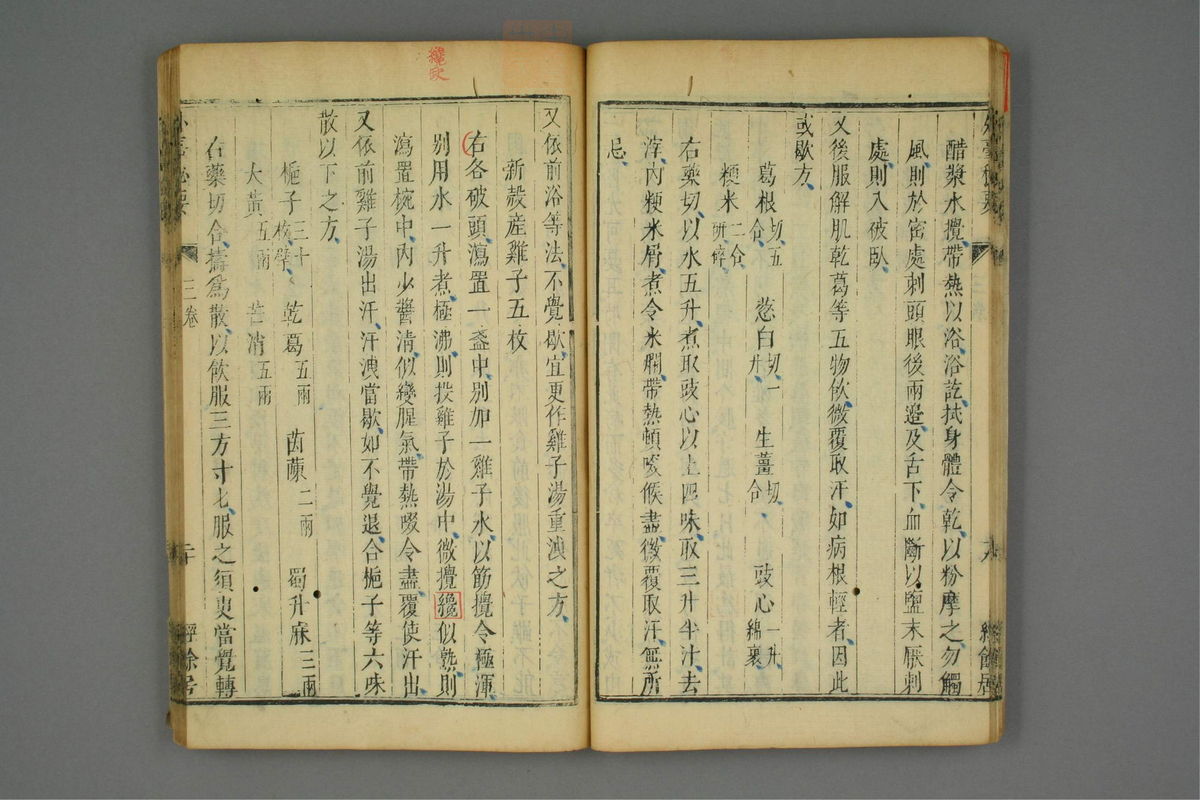 醋漿水攪帶熱以浴浴訖拭身體令乾以粉摩之勿觸
風則於密處刺頭眼後兩邊及舌下血斷以鹽末厭刺
處則入破臥
又後服解肌乾葛等五物飲微覆取汗如病根輕者因此
或歇方
葛根切五合 葱白切一升 生薑切合 豉心一升綿裹
粳米二合研碎
右藥切以水五升煮取豉心以上四味取三升半汁去
滓內粳米屑煮令米爛帶熱頓喫候盡微覆取汗無所
忌
又依前浴等法不覺歇宜更作雞子湯重洩之方
新殼産雞子五枚
右各破頭瀉置一盞中別加一雞子水以筋攪令極渾
別用水一升煮極沸則投雞子於湯中微攪纔似熟則
瀉置椀中內少醬清似變腥氣帶熱啜令盡覆使汗出
又依前雞子湯出汗汗洩當歇如不覺退合梔子等六味
散以下之方
梔子三十枚擘 乾葛五兩 茵蔯二兩 蜀升麻三兩
大黃五兩 芒消五兩
右藥切合擣爲散以飲服三方寸匕服之須臾當覺轉
三卷